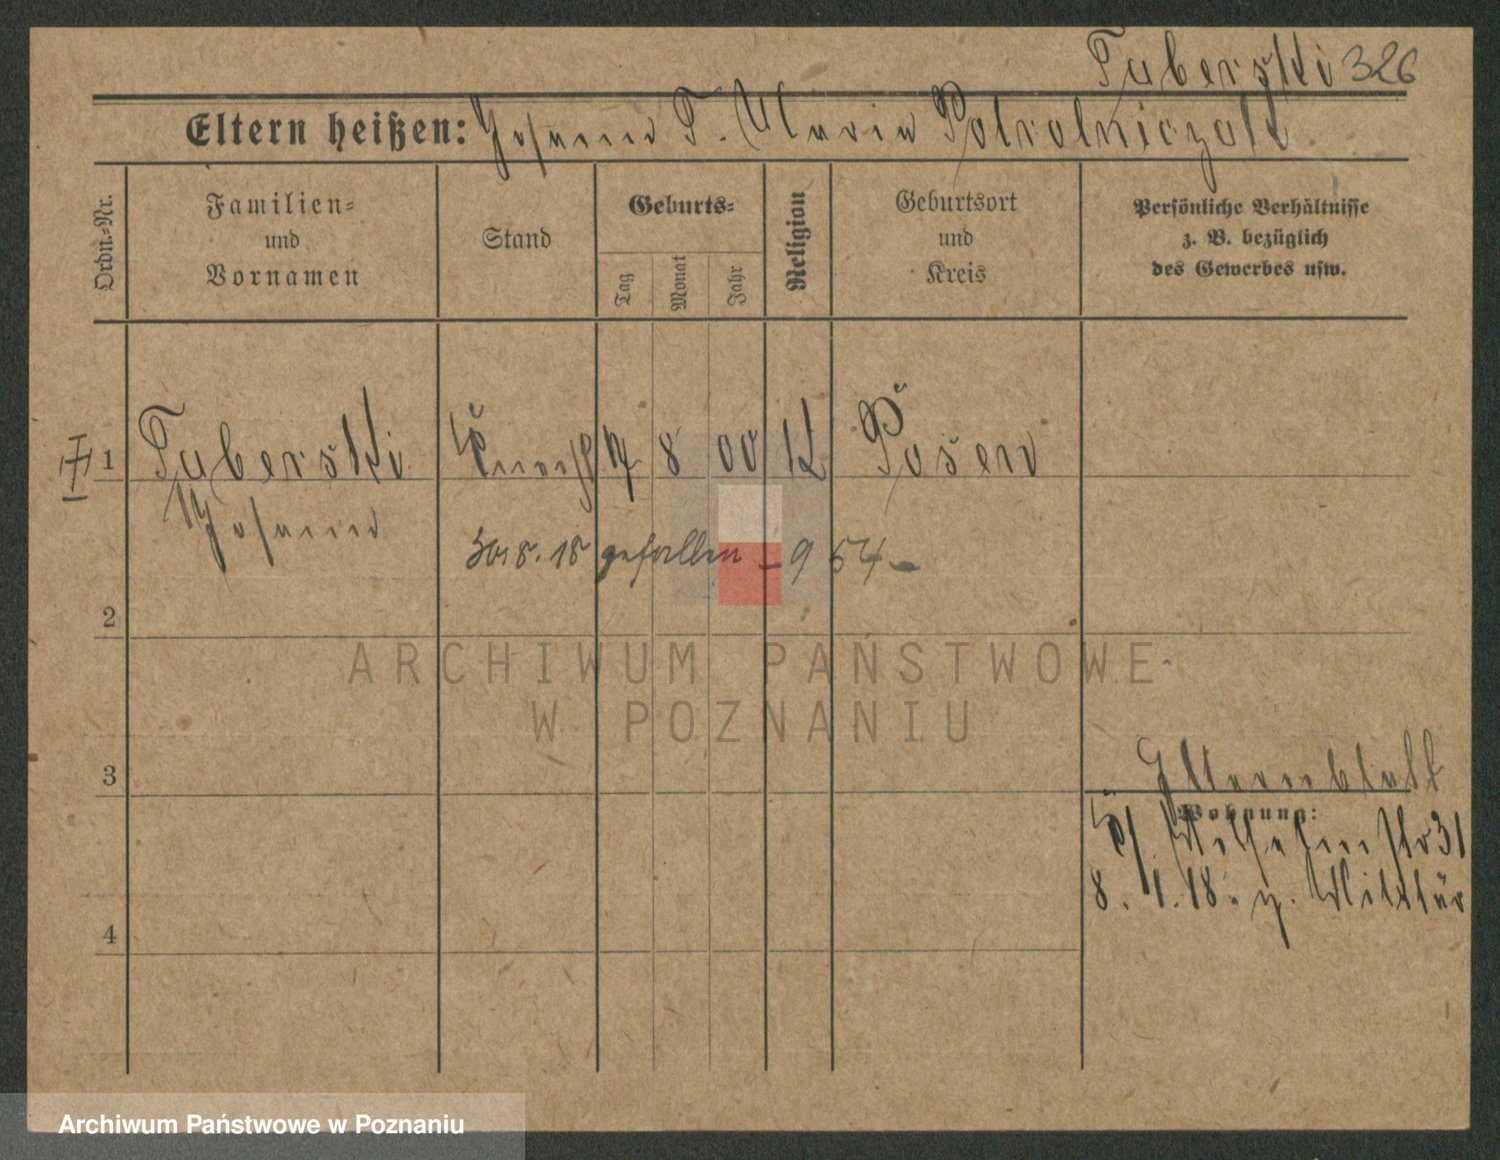 Taberski 326
Eltern heißen: Johann T. Maria
Ordn.-Nr.
Familien-
und
Vornamen
Stand
Geburts-
Tag
Monat
Jahr
Religion
Geburtsort
und
Kreis
Persönliche Verhältnisse
z. B. bezüglich
des Gewerbes usw.
1 Taberski 8 00 K Posen
Johann
30.8.18 gefallen - 954 -
2
ARCHIWUM PAŃSTWOWE
W POZNANIU
3
Elternblatt
Wohnung:
Wilhelmstr 31
8. 1. 18. z. Militär
4
Archiwum Państwowe w Poznaniu